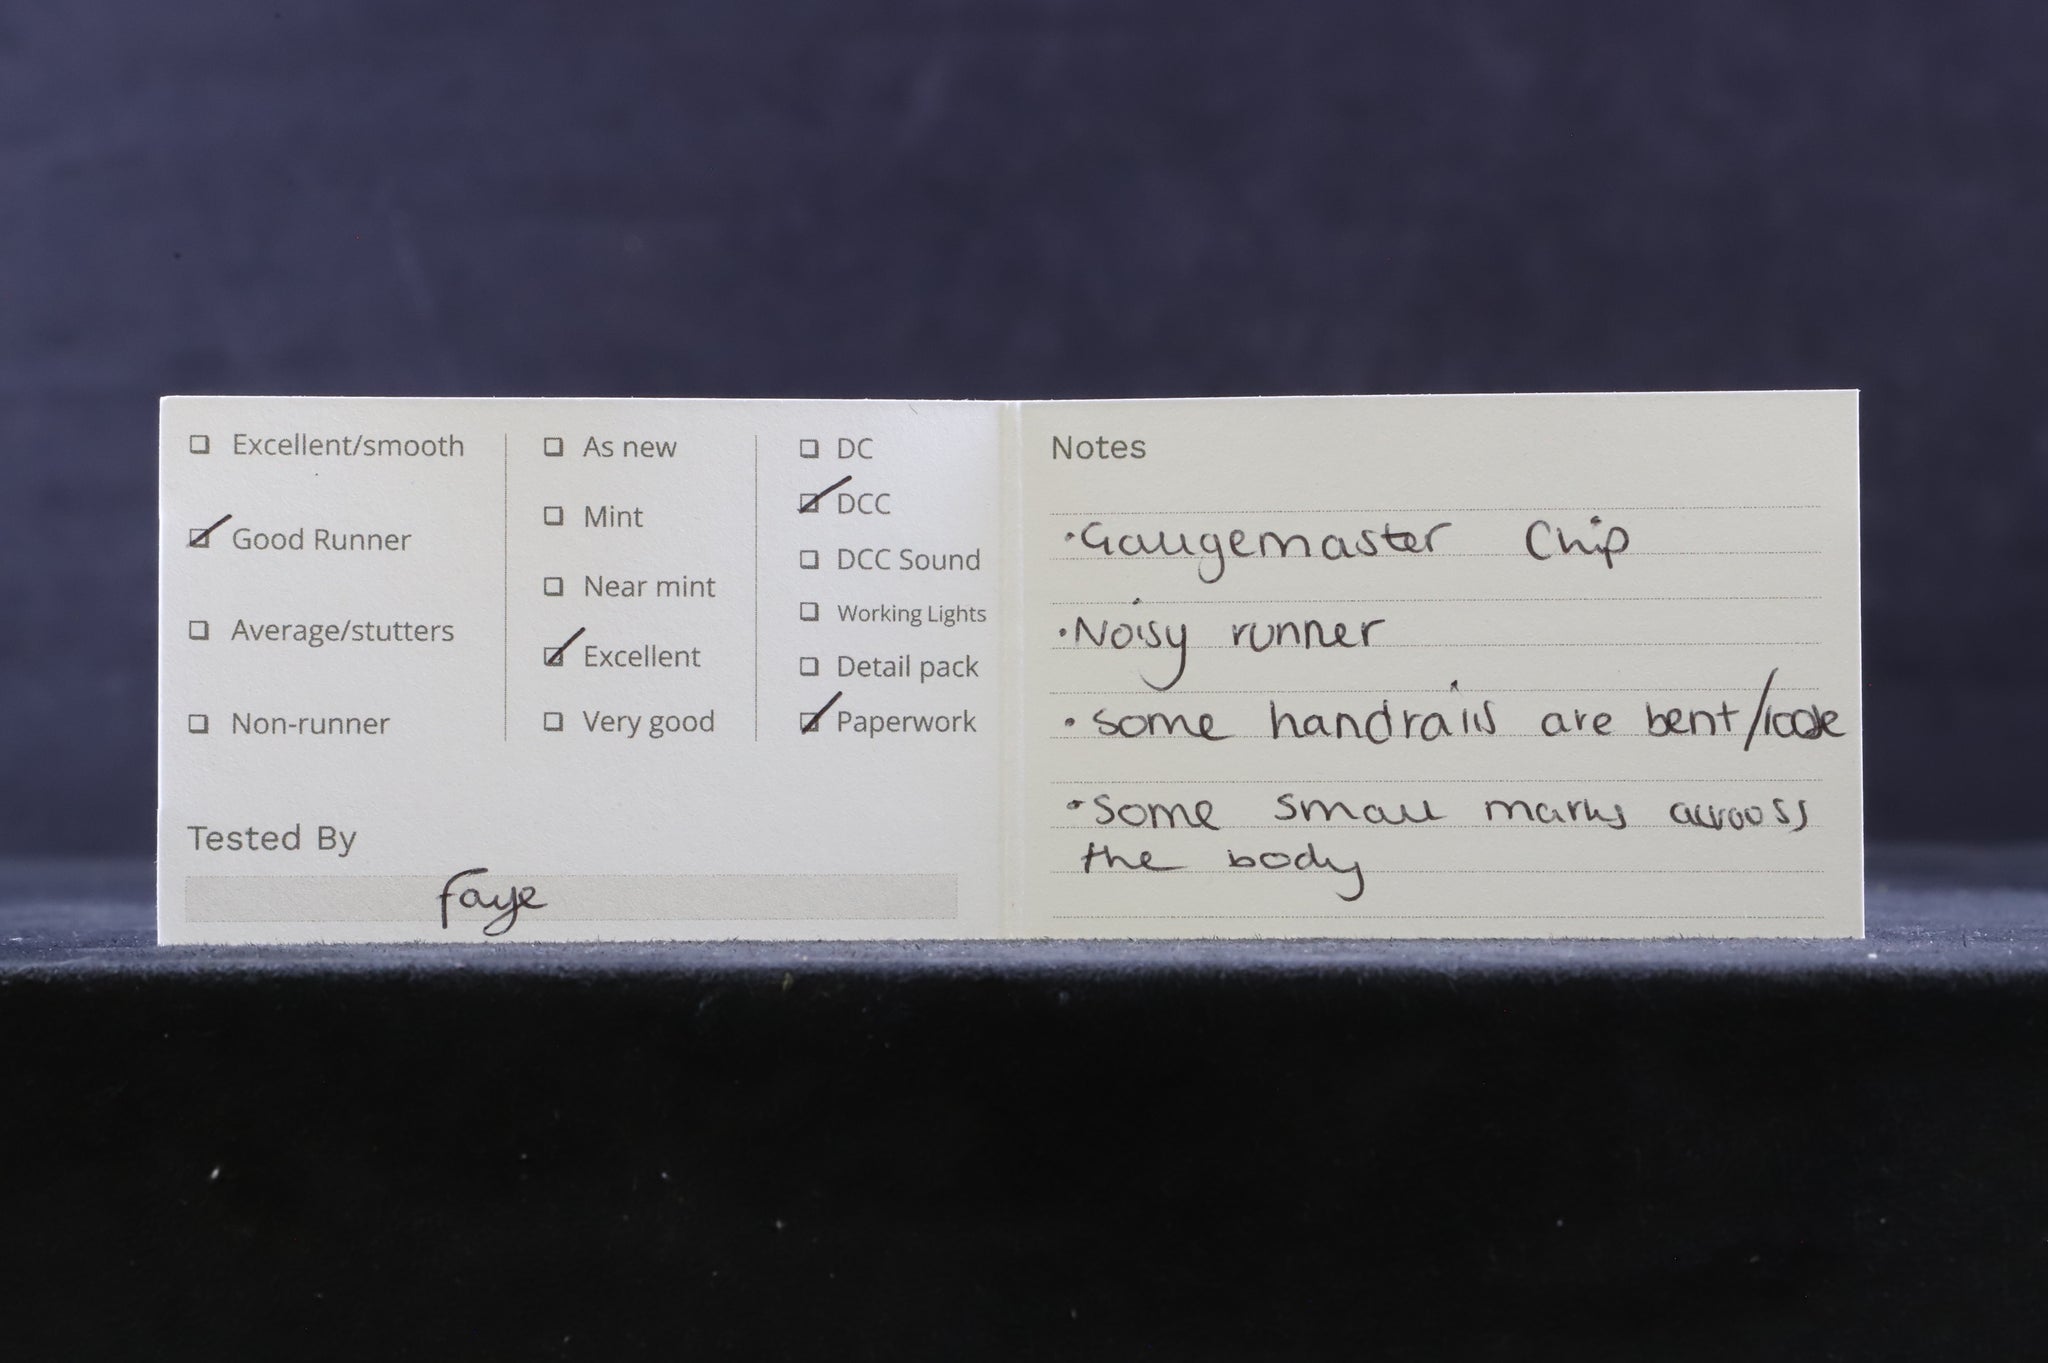 Excellent/smooth
Good Runner
Average/stutters
Non-runner
As new
Mint
Near mint
Excellent
Very good
DC
DCC
DCC Sound
Working Lights
Detail pack
Paperwork
Tested By
faye
Notes
• Gaugemaster Chip
• Noisy runner
• Some handrails are bent/loose
• Some small marks across
the body